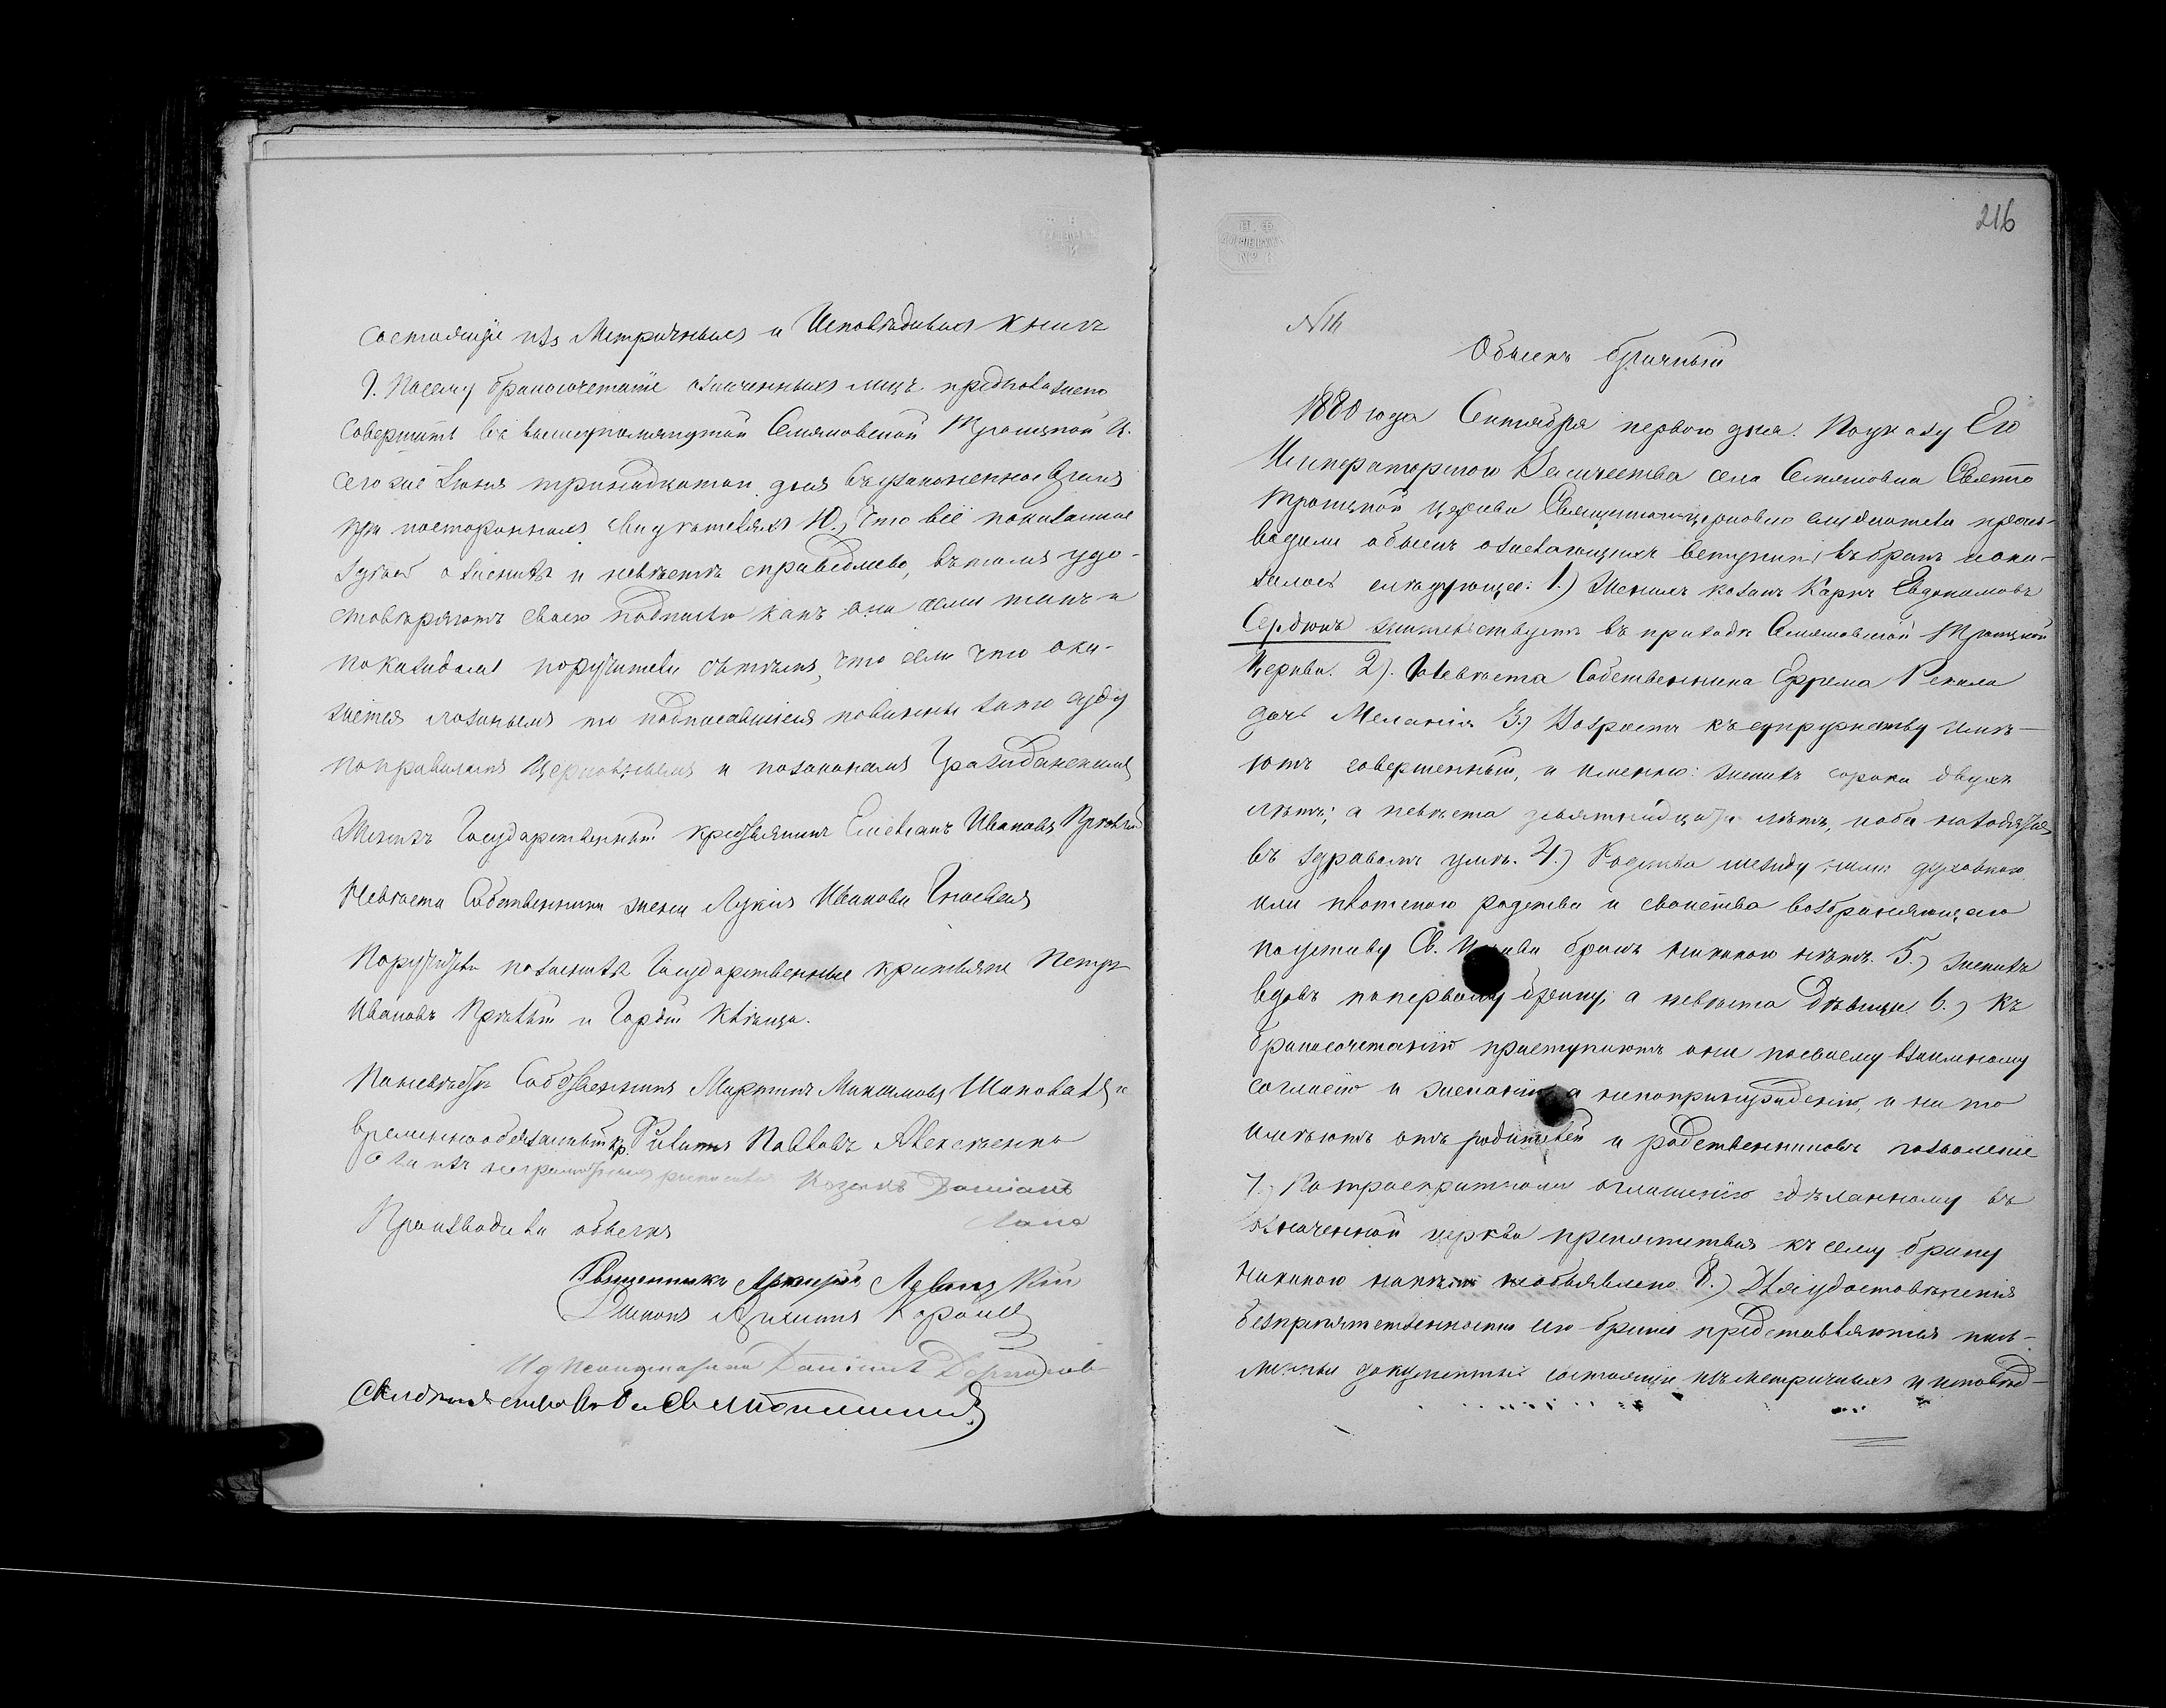 состоящiе изъ Метрычныхъ и Исповѣдныхъ Книгъ
9. Посему бракосочетанiе означенныхъ лицъ предположено
совершить въ вышеупомянутой Семяновской Троицкой Ц.
сего же Iюня тринадцатаго дня въ узаконенное время
при постороннихъ свидѣтеляхъ 10.) Что всё показанное
здѣсь о женихѣ и невѣстѣ справедливо, въ томъ удо-
стовѣряютъ своею подписью какъ они сами такъ и
поручители съ тѣмъ, что если что ока-
жется ложнымъ то подписавшiеся повинны за то суду
по правиламъ Церковнымъ и по законамъ Гражданскимъ
Женихъ Государственный крестьянинъ Емельянъ Ивановъ
Невѣста Собственника жена Лукiя Иванова
Поручители по женихѣ Государственные крестьяне Петръ
Ивановъ и Гордѣй Квѣтка.
По невѣстѣ Собственникъ Мартинъ Максимовъ Шаповалъ и
временнообязанный кр. Филипъ Павловъ Алексѣенко
а за ихъ неграмотныхъ росписался Козакъ Дамiанъ
Производили обыскъ
Священникъ
Дьяконъ
И д Псаломщика Данiилъ
№ 14
216
Обыскъ брачный
1880 года Сентября перваго дня. По указу Его
Императорскаго Величества села Семяновки Свято
Троицкой церкви Священноцерковно служители произ-
водили обыскъ о желающихъ вступить въ бракъ и ока-
залось слѣдующее: 1.) Женихъ козакъ Карпъ Евдокимовъ
Сердюкъ жительствуетъ въ приходѣ Семяновской Троицкой
Церкви. 2). Невѣста Собственника Ефрема Рекала
дочь Меланiя 3.) Возрастъ къ супружеству имѣ-
ютъ совершенный, и именно: женихъ сорока двухъ
лѣтъ; а невѣста девятнадцати лѣтъ, и оба находятся
въ здравомъ умѣ. 4.) Родства между ними духовнаго
или плотскаго родства и свойства возбраняющаго
по уставу Св. Церкви бракъ никакого нѣтъ. 5.) Женихъ
вдовъ по первому браку; а невѣста дѣвица. 6.) Къ
бракосочетанiю приступаютъ они по своему взаимному
согласiю и желанiю а не по принужденiю, и на то
имѣютъ отъ родителей и родственниковъ позволенiе
7.) По троекратному оглашенiю сдѣланному въ
означенной церкви препятствiя къ сему браку
никакого никѣмъ необъявлено. 8.) Для удостовѣренiя
безпрепятственности сего брака представляются пись-
менные документы состоящiе изъ метричныхъ и исповѣд-